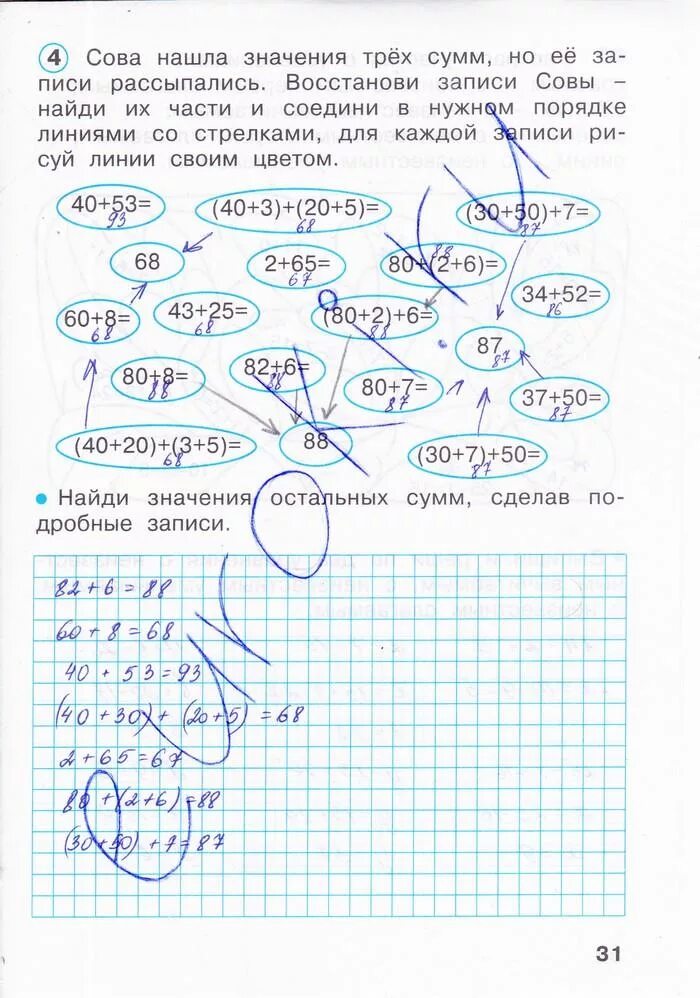 4 Сова нашла значения трёх сумм, но её за-
писи рассыпались. Восстанови записи Совы –
найди их части и соедини в нужном порядке
линиями со стрелками, для каждой записи ри-
суй линии своим цветом.
40+53= 93
(40+3)+(20+5)= 68
(30+50)+7= 87
68
2+65= 67
80+(2+6)= 88
34+52= 86
60+8= 68
43+25= 68
(80+2)+6= 88
87 87
80+8= 88
82+6= 88
80+7= 87
37+50= 87
(40+20)+(3+5)= 68
88
(30+7)+50= 87
• Найди значения остальных сумм, сделав по-
дробные записи.
82+6=88
60+8=68
40+53=93
(40+30)+(20+5)=68
2+65=67
80+(2+6)=88
(30+50)+7=87
31